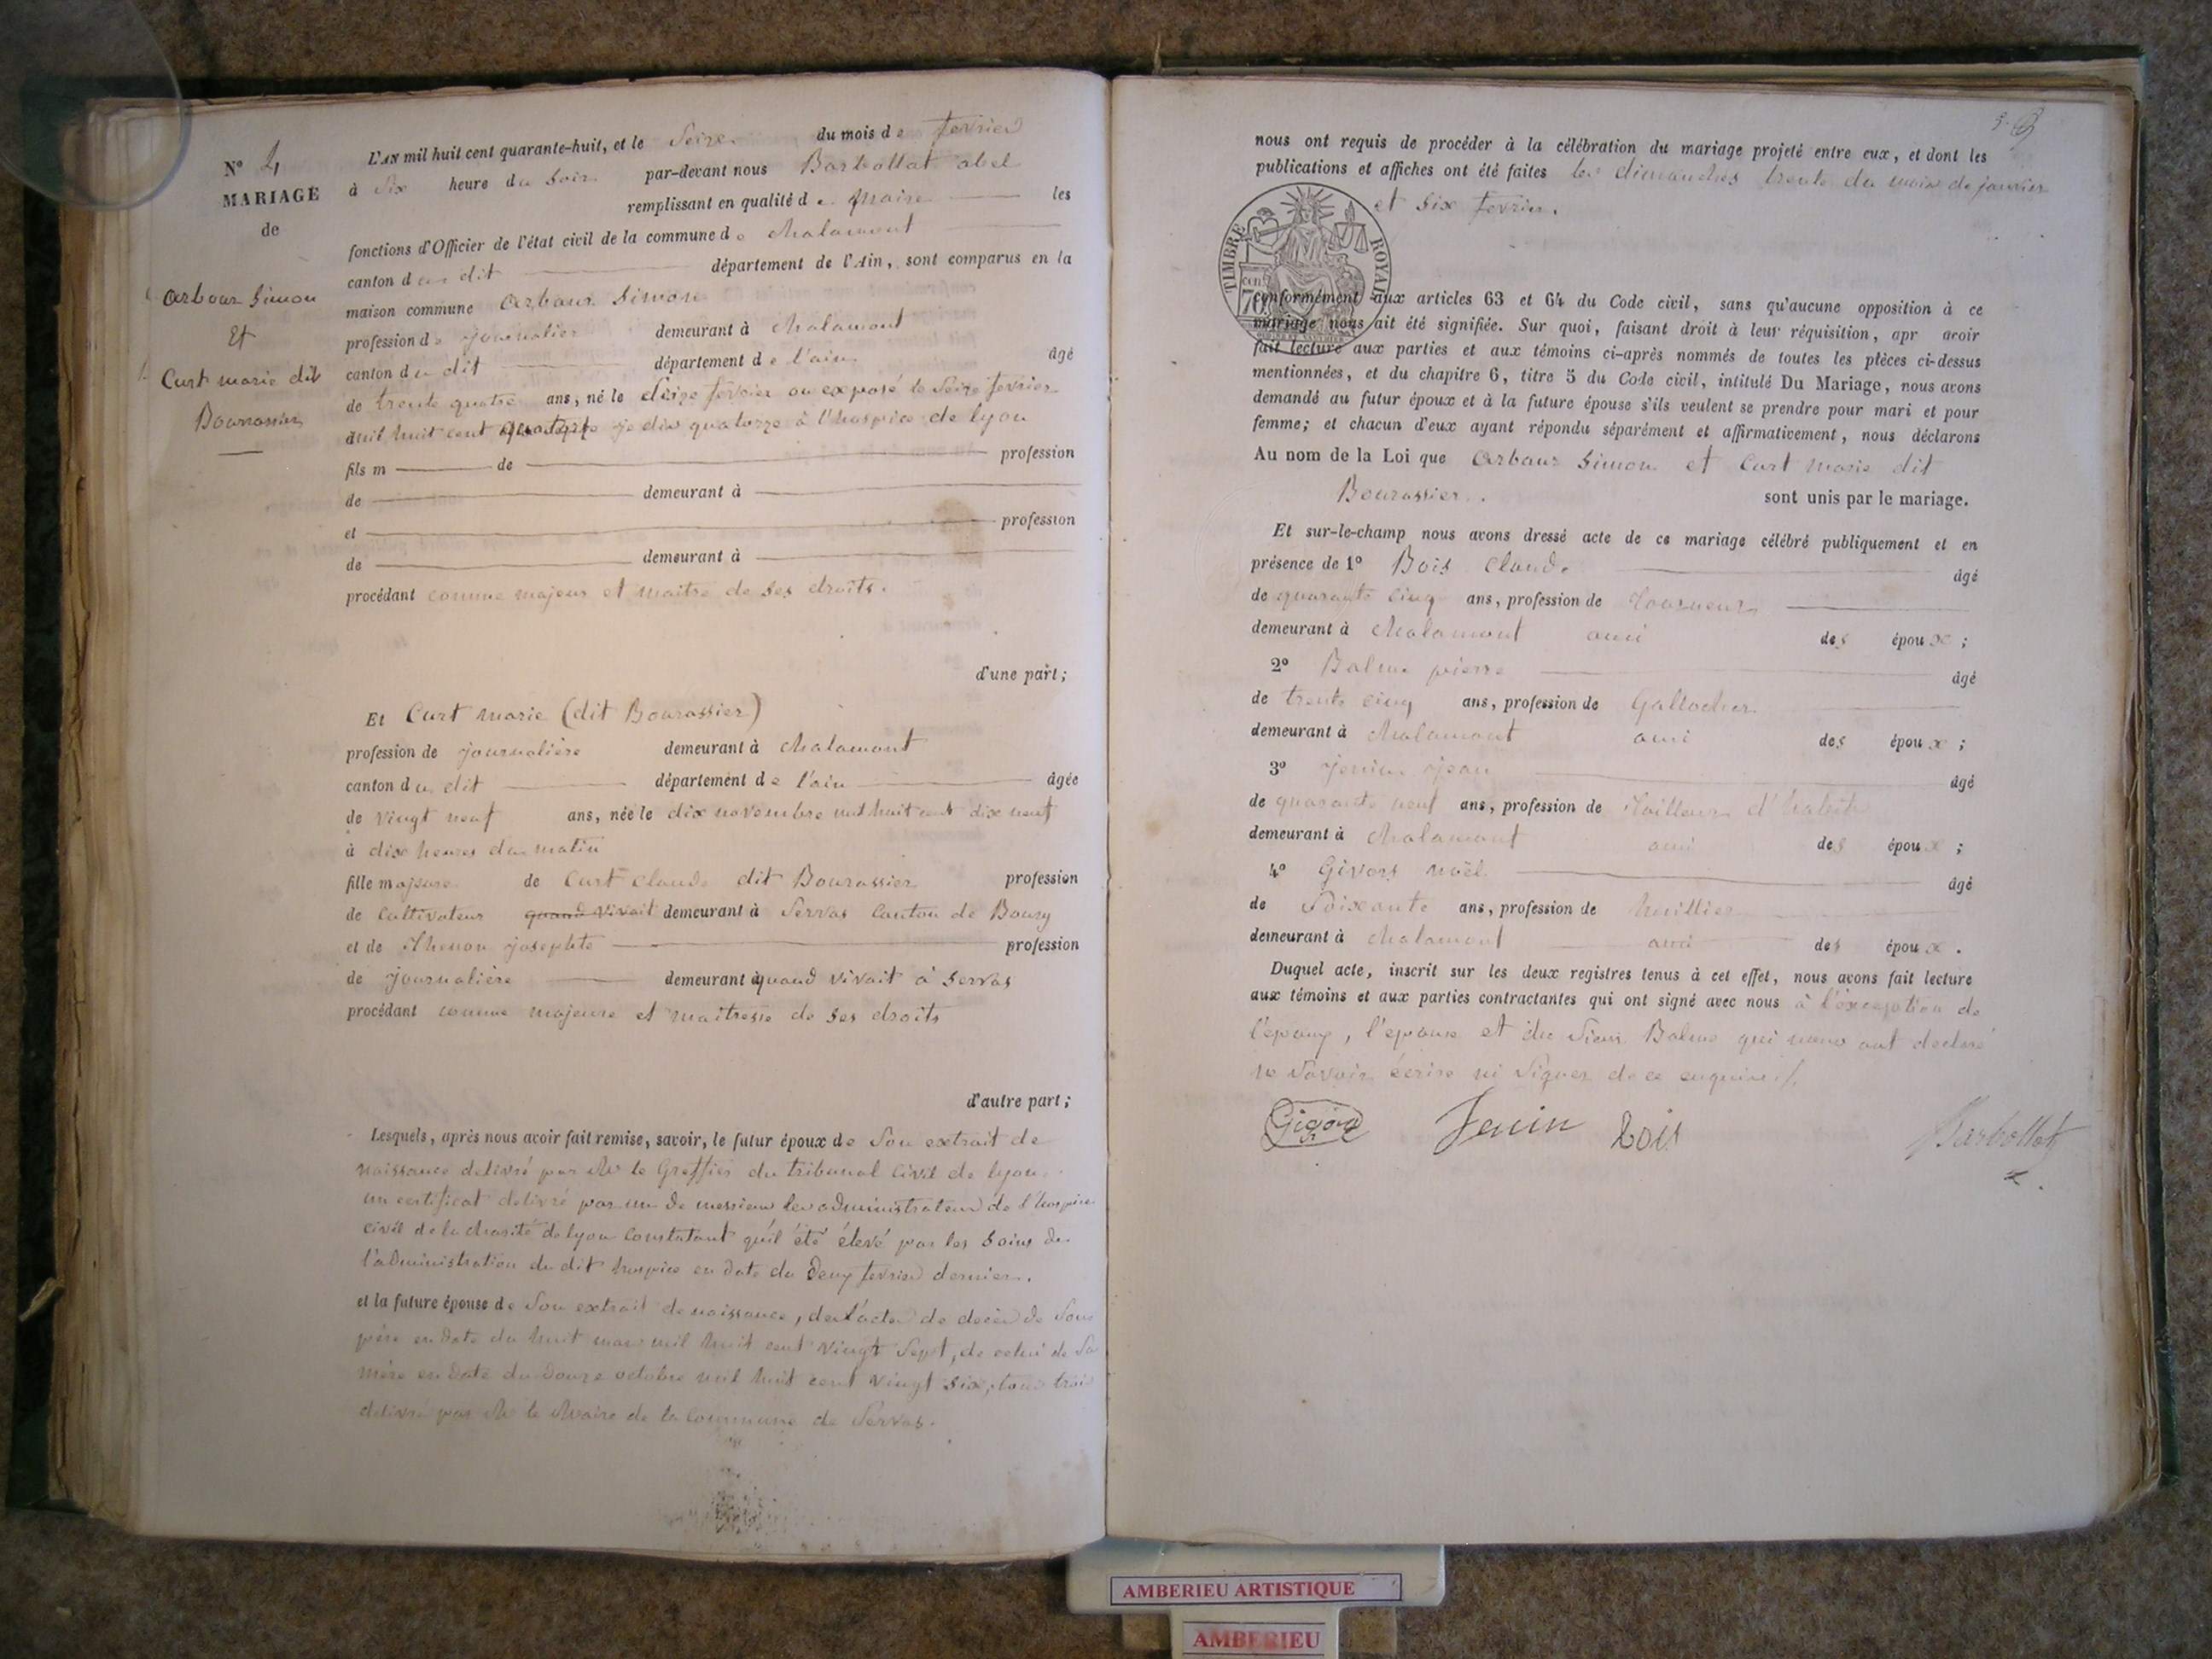 N° 4
MARIAGE
de
Arbour Simon
Et
Curt marie dit
Bourassier
L'AN mil huit cent quarante-huit, et le Seize du mois de fevrier
à Six heure du Soir par-devant nous Barbollat abel
remplissant en qualité de Maire les
fonctions d'Officier de l'état civil de la commune de Chalamont
canton du dit département de l'Ain, sont comparus en la
maison commune Arbour Simon
profession de journalier demeurant à Chalamont
canton du dit département de l'ain âgé
de trente quatre ans, né le Seize fevrier ou exposé le Seize fevrier
mil huit cent quatorze à l'hospice de lyon
fils m de profession
de demeurant à
et profession
de demeurant à
procédant comme majeur et maitre de Ses droits.
d'une part;
Et Curt marie (dit Bourassier)
profession de journalière demeurant à Chalamont
canton du dit département de l'ain âgée
de vingt neuf ans, née le dix novembre mil huit cent dix neuf
à dix heures du matin
fille majeure de Curt Claude dit Bourassier profession
de Cultivateur quand vivait demeurant à Servas Canton de Bourg
et de Thenon josephte profession
de journalière demeurant à quand vivait à Servas
procédant comme majeure et maitresse de Ses droits
d'autre part;
Lesquels, après nous avoir fait remise, savoir, le futur époux de Son extrait de
naissance delivré par Mr le Greffier du tribunal Civil de lyon.
un certificat delivré par un de messieur les administrateur de l'hospice
civil de la charité de lyon Constatant qu'il été élevé par les Soins de
l'administration du dit hospice en date du Deux fevrier dernier.
et la future épouse de Son extrait de naissance, de l'acte de décès de Son
père en date du huit mars mil huit cent vingt Sept, de celui de Sa
mère en date du Douze octobre mil huit cent vingt Six, tous trois
delivré par Mr le Maire de la Commune de Servas.
nous ont requis de procéder à la célébration du mariage projeté entre eux, et dont les
publications et affiches ont été faites les dimanches trente du mois de janvier
et Six fevrier.
TIMBRE ROYAL
70 cen.
conformément aux articles 63 et 64 du Code civil, sans qu'aucune opposition à ce
mariage nous ait été signifiée. Sur quoi, faisant droit à leur réquisition, apr avoir
fait lecture aux parties et aux témoins ci-après nommés de toutes les pièces ci-dessus
mentionnées, et du chapitre 6, titre 5 du Code civil, intitulé Du Mariage, nous avons
demandé au futur époux et à la future épouse s'ils veulent se prendre pour mari et pour
femme; et chacun d'eux ayant répondu séparément et affirmativement, nous déclarons
Au nom de la Loi que Arbour Simon et Curt Marie dit
Bourassier. sont unis par le mariage.
Et sur-le-champ nous avons dressé acte de ce mariage célébré publiquement et en
présence de 1° Bois Claude âgé
de quarante cinq ans, profession de Tourneur
demeurant à Chalamont ami des époux ;
2° Balme pierre âgé
de trente cinq ans, profession de Gallocher
demeurant à Chalamont ami des époux ;
3° Jenin Jean âgé
de quarante neuf ans, profession de Tailleur d'habits
demeurant à Chalamont ami des époux ;
4° Givors noël âgé
de Soixante ans, profession de huillier
demeurant à Chalamont ami des époux .
Duquel acte, inscrit sur les deux registres tenus à cet effet, nous avons fait lecture
aux témoins et aux parties contractantes qui ont signé avec nous à l'exception de
l'epoux, l'epouse et du Sieur Balme qui nous ont declaré
ne Savoir écrire ni Signer de ce enquis
Jenin Bois Barbollat
AMBERIEU ARTISTIQUE
AMBERIEU